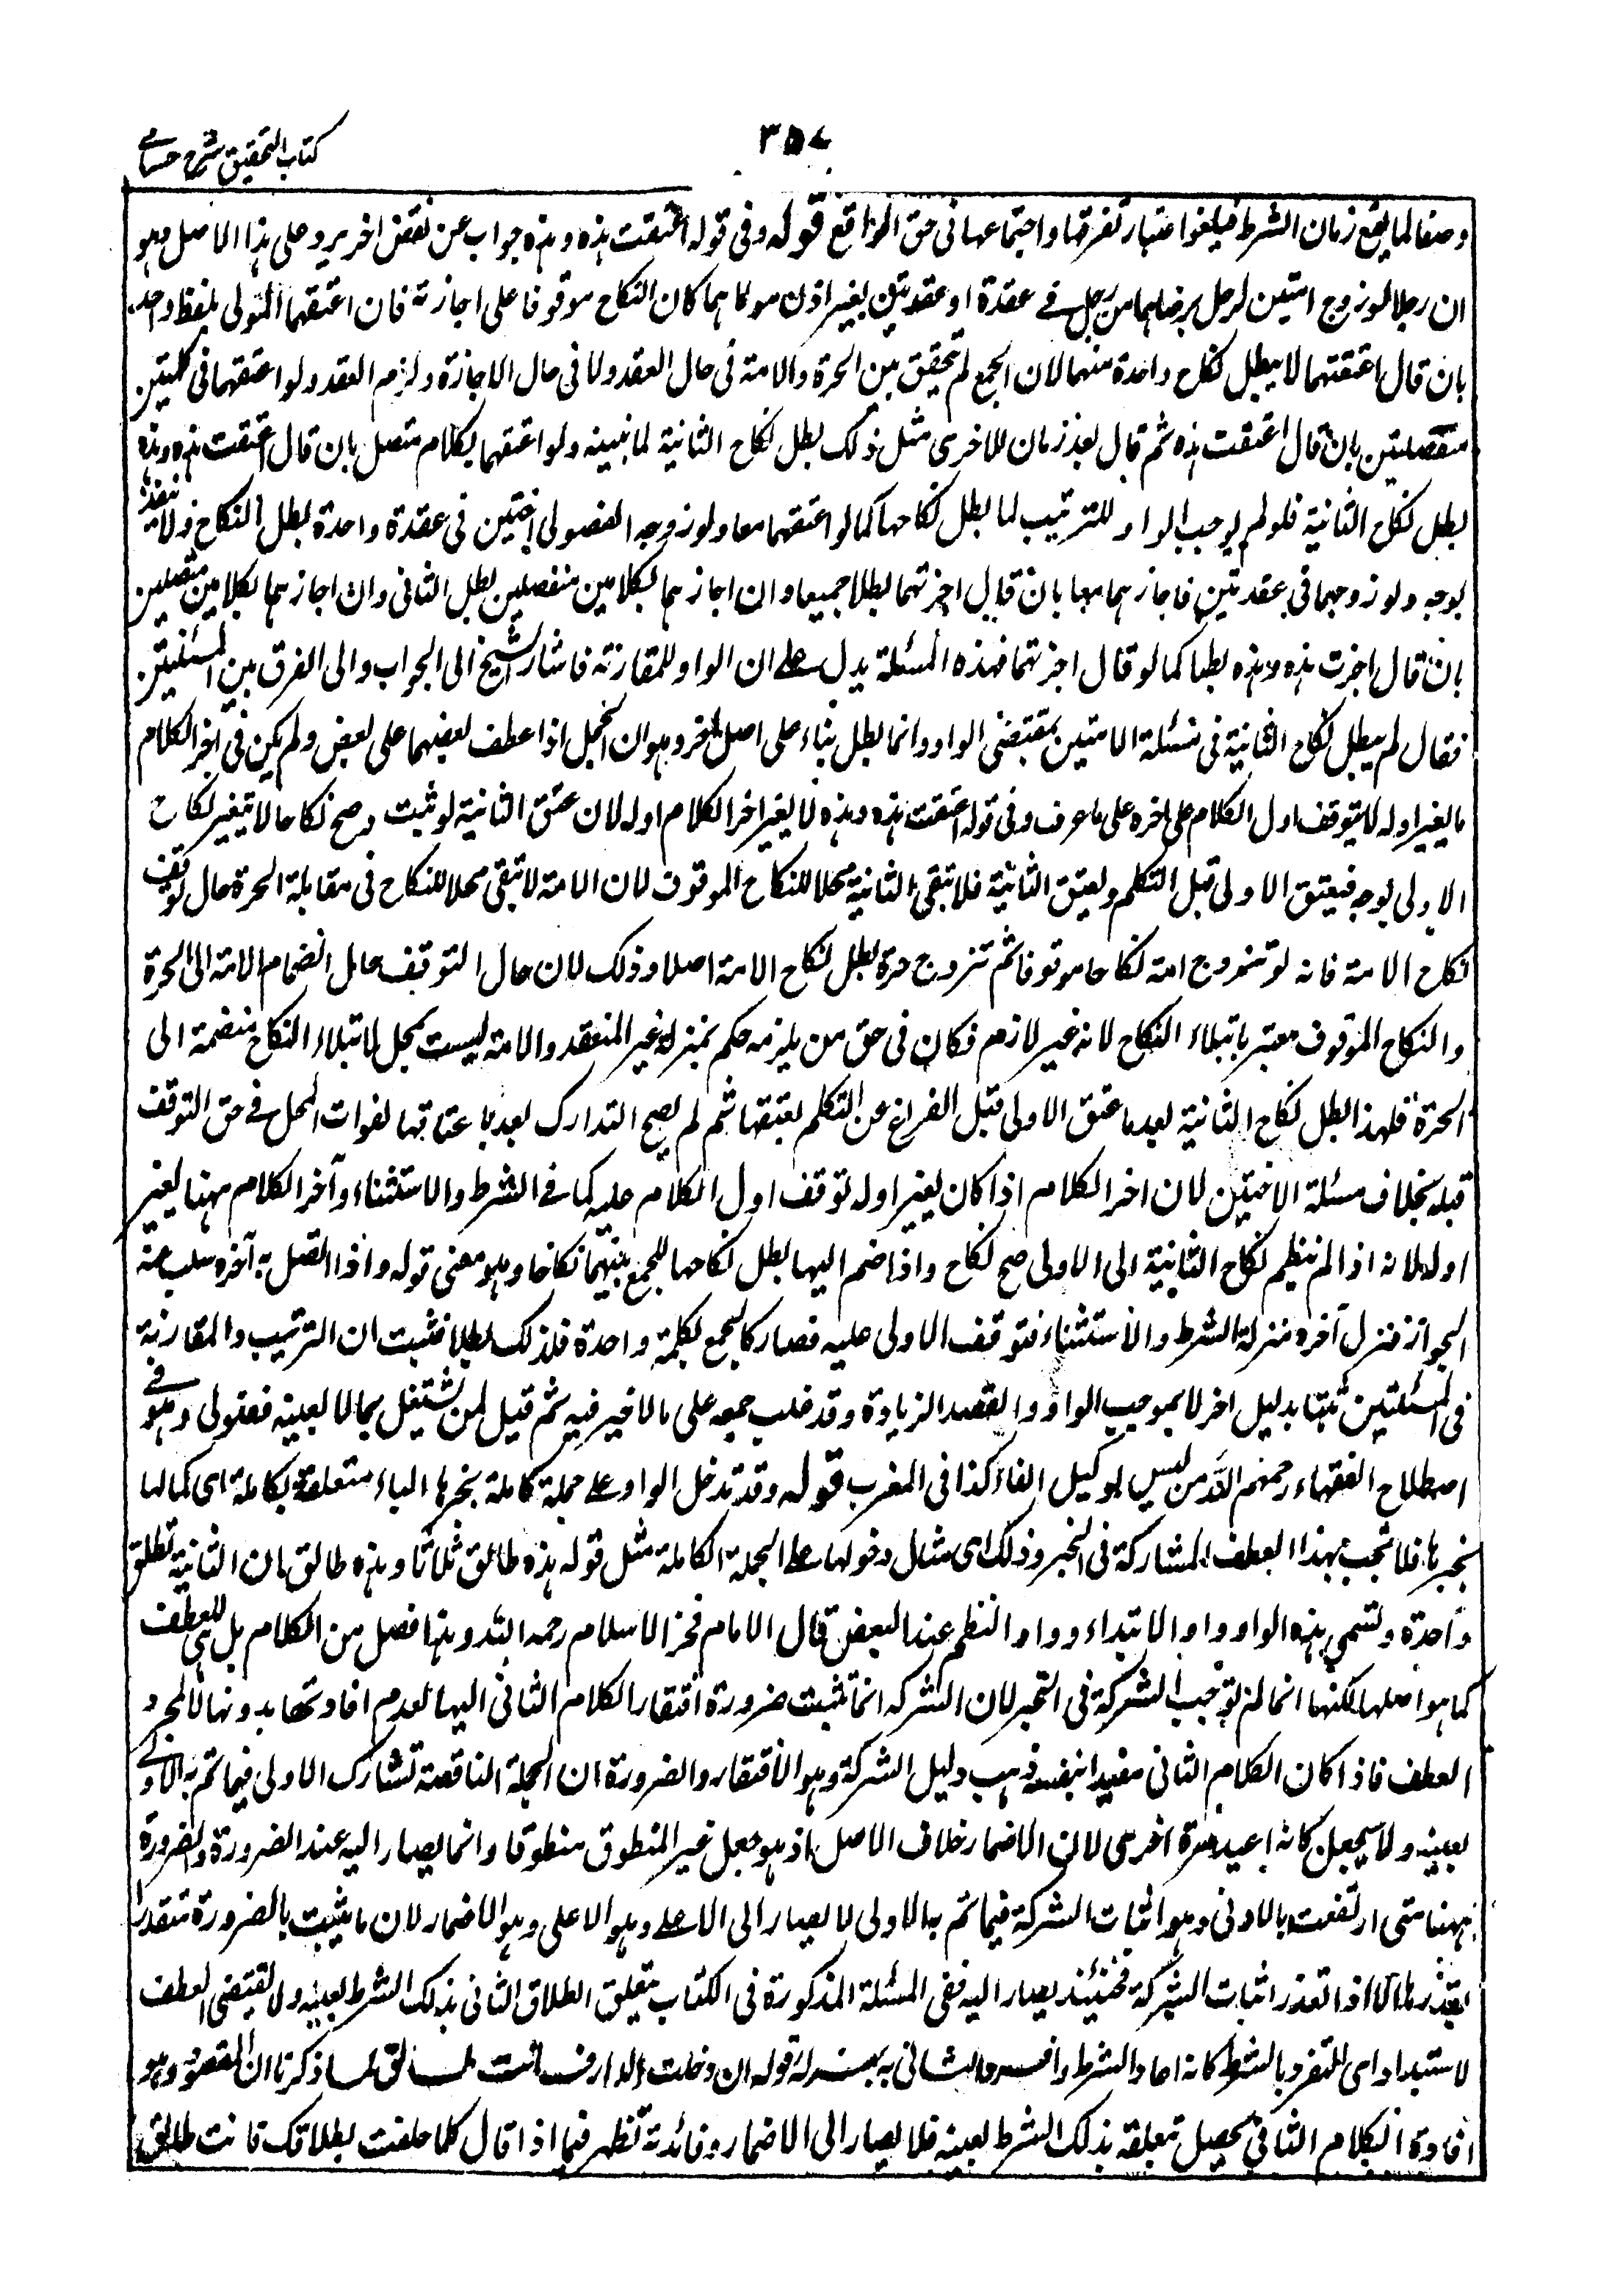 كتاب التحقيق شرح حسامى
٣٥٧
وصفا لما يقع زمان الشرط فيلغوا اعتبار تفرقها واجتماعها فى حق الواقع قوله وفى قوله اعتقت هذه وهذه جواب عن نقض اخر يرد على هذا الاصل وهو
ان رجلا لو زوج امتين لرجل برضاهما من رجل فے عقدة او عقدتين بغير اذن مولاهما كان النكاح موقوفا على اجازته فان اعتقهما المولى بلفظ واحد
بان قال اعتقتهما لا يبطل نكاح واحدة منهما لان الجمع لم يتحقق بين الحرة والامة فى حال العقد ولا فى حال الاجازة ولزم العقد ولو اعتقهما فى كلمتين
منفصلتين بان قال اعتقت هذه ثم قال بعد زمان للاخرى مثل ذلك بطل نكاح الثانية لما نبينه ولو اعتقهما بكلام متصل بان قال اعتقت هذه وهذه
بطل نكاح الثانية فلو لم يوجب الواو للترتيب لما بطل نكاحها كما لو اعتقهما معا ولو زوجه الفضولى اختين فى عقدة واحدة بطل النكاح ولا ينفذ
بوجه ولو زوجهما فى عقدتين فاجازهما معا بان قال اجزتهما بطلا جميعا وان اجازهما بكلامين منفصلين بطل الثانى وان اجازهما بكلامين متصلين
بان قال اجزت هذه وهذه بطلا كما لو قال اجزتهما فهذه المسئلة يدل علے ان الواو للمقارنة فاشار الشيخ الى الجواب والى الفرق بين المسئلتين
فقال لم يبطل نكاح الثانية فى مسئلة الامتين بمقتضى الواو وانما بطل بناء على اصل اخر وهو ان الجمل اذا عطف بعضهما على بعض ولم يكن فى اخر الكلام
ما يغير اوله لا يتوقف اول الكلام على اخره على ما عرف وفى قوله اعتقت هذه وهذه لا يغير اخر الكلام اوله لان عتق الثانية لو ثبت وصح نكاحا لا يتغير نكاح
الاولى بوجه فيعتق الاولى قبل التكلم بعتق الثانية فلا تبقى الثانية محلا للنكاح الموقوف لان الامة لا تبقى محلا للنكاح فى مقابلة الحرة حال توقف
نكاح الامة فانه لو تزوج امة نكاحا موقوفا ثم تزوج حرة بطل نكاح الامة اصلا وذلك لان حال التوقف حال انضمام الامة الى الحرة
والنكاح الموقوف معتبر بابتداء النكاح لانه غير لازم فكان فى حق من يلزمه حكم بمنزلة غير المنعقد والامة ليست بمحل لابتداء النكاح منضمة الى
الحرة فلهذا بطل نكاح الثانية بعد ما عتق الاولى قبل الفراغ عن التكلم بعتقها ثم لم يصح التدارك بعد باعتاقها لفوات المحل فے حق التوقف
قبله بخلاف مسئلة الاختين لان اخر الكلام اذا كان يغير اوله توقف اول الكلام عليه كما فے الشرط والاستثناء وآخر الكلام ههنا يغير
اوله لانه اذا لم ينضم نكاح الثانية الى الاولى صح نكاح واذا ضم اليها بطل نكاحها للجمع بينهما نكاحا وهو معنى قوله واذا اتصل به آخره سلب عنه
الجواز فنزل آخره منزلة الشرط والاستثناء فتوقف الاولى عليه فصار كالجمع بكلمة واحدة فلذلك بطلا فثبت ان الترتيب والمقارنة
فى المسئلتين ثبتا بدليل اخر لا بموجب الواو والفضل الزيادة وقد غلب جمعه على ما لا خير فيه ثم قيل لمن يشتغل بما لا يعنيه فضولى وهو فے
اصطلاح الفقهاء رحمهم الله من ليس بوكيل الفاء كذا فى المغرب قوله وقد تدخل الواو علے جملة كاملة بخبرها الباء متعلقة بكاملة اى كمالها
بخبرها فلا تجب بهذا العطف المشاركة فى الخبر وذلك اى مثال دخولها علے الجملة الكاملة مثل قوله هذه طالق ثلاثا وهذه طالق ان الثانية تطلق
واحدة وتسمى هذه الواو واو الابتداء وواو النظم عند البعض قال الامام فخر الاسلام رحمه الله وهذا فضل من الكلام بل هى للعطف
كما هو اصلها لكنها انما لم توجب الشركة فى الخبر لان الشركة انما تثبت ضرورة افتقار الكلام الثانى اليها لعدم افادتها بدونها لا لمجرد
العطف فاذا كان الكلام الثانى مفيدا بنفسه ذهب دليل الشركة وهو الافتقار والضرورة ان الجملة الناقصة تشارك الاولى فيما تم به الاولے
بعينه ولا يجعل كانه اعيد مرة اخرى لان الاضمار خلاف الاصل اذ هو جعل غير المنطوق منطوقا وانما يصار اليه عند الضرورة والضرورة
ههنا متى ارتفعت بالادنى وهو اثبات الشركة فيما تم به الاولى لا يصار الى الاعلے وهو الاضمار لان ما يثبت بالضرورة يتقدر
بقدرها الا اذا تعذر اثبات الشركة فحينئذ يصار اليه ففى المسئلة المذكورة فى الكتاب يتعلق الطلاق الثانى بذلك الشرط بعينه ولا يقتضى العطف
لاستبداد اى للتفرد بالشرط كانه اعاد الشرط وافرد الثانى به بمنزلة قوله ان دخلت الدار فانت طالق لما ذكرنا ان المقصود وهو
افادة الكلام الثانى يحصل بتعلقه بذلك الشرط بعينه فلا يصار الى الاضمار وفائدته تظهر فيما اذا قال كلما حلفت بطلاقك فانت طالق